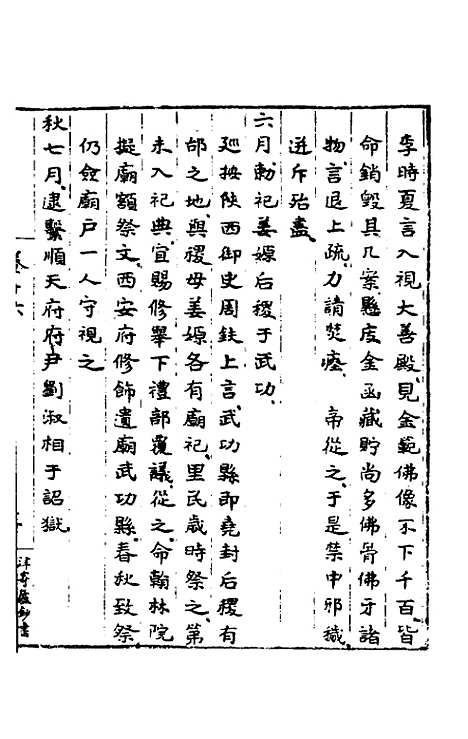 李時夏言入視大善殿見金範佛像不下千百皆
命銷毀其几案懸庋金函藏貯尚多佛骨佛牙諸
物言退上疏力請焚瘞 帝從之于是禁中邪穢
迸斥殆盡
六月勅祀姜嫄后稷于武功
廵按陜西御史周鈇上言武功縣即堯封后稷有
邰之地與稷母姜嫄各有廟祀里民歲時祭之第
未入祀典宜賜修舉下禮部覆議從之命翰林院
擬廟額祭文西安府修飾遺廟武功縣春秋致祭
仍僉廟戶一人守視之
秋七月逮繫順天府府尹劉淑相于詔獄
卷十六